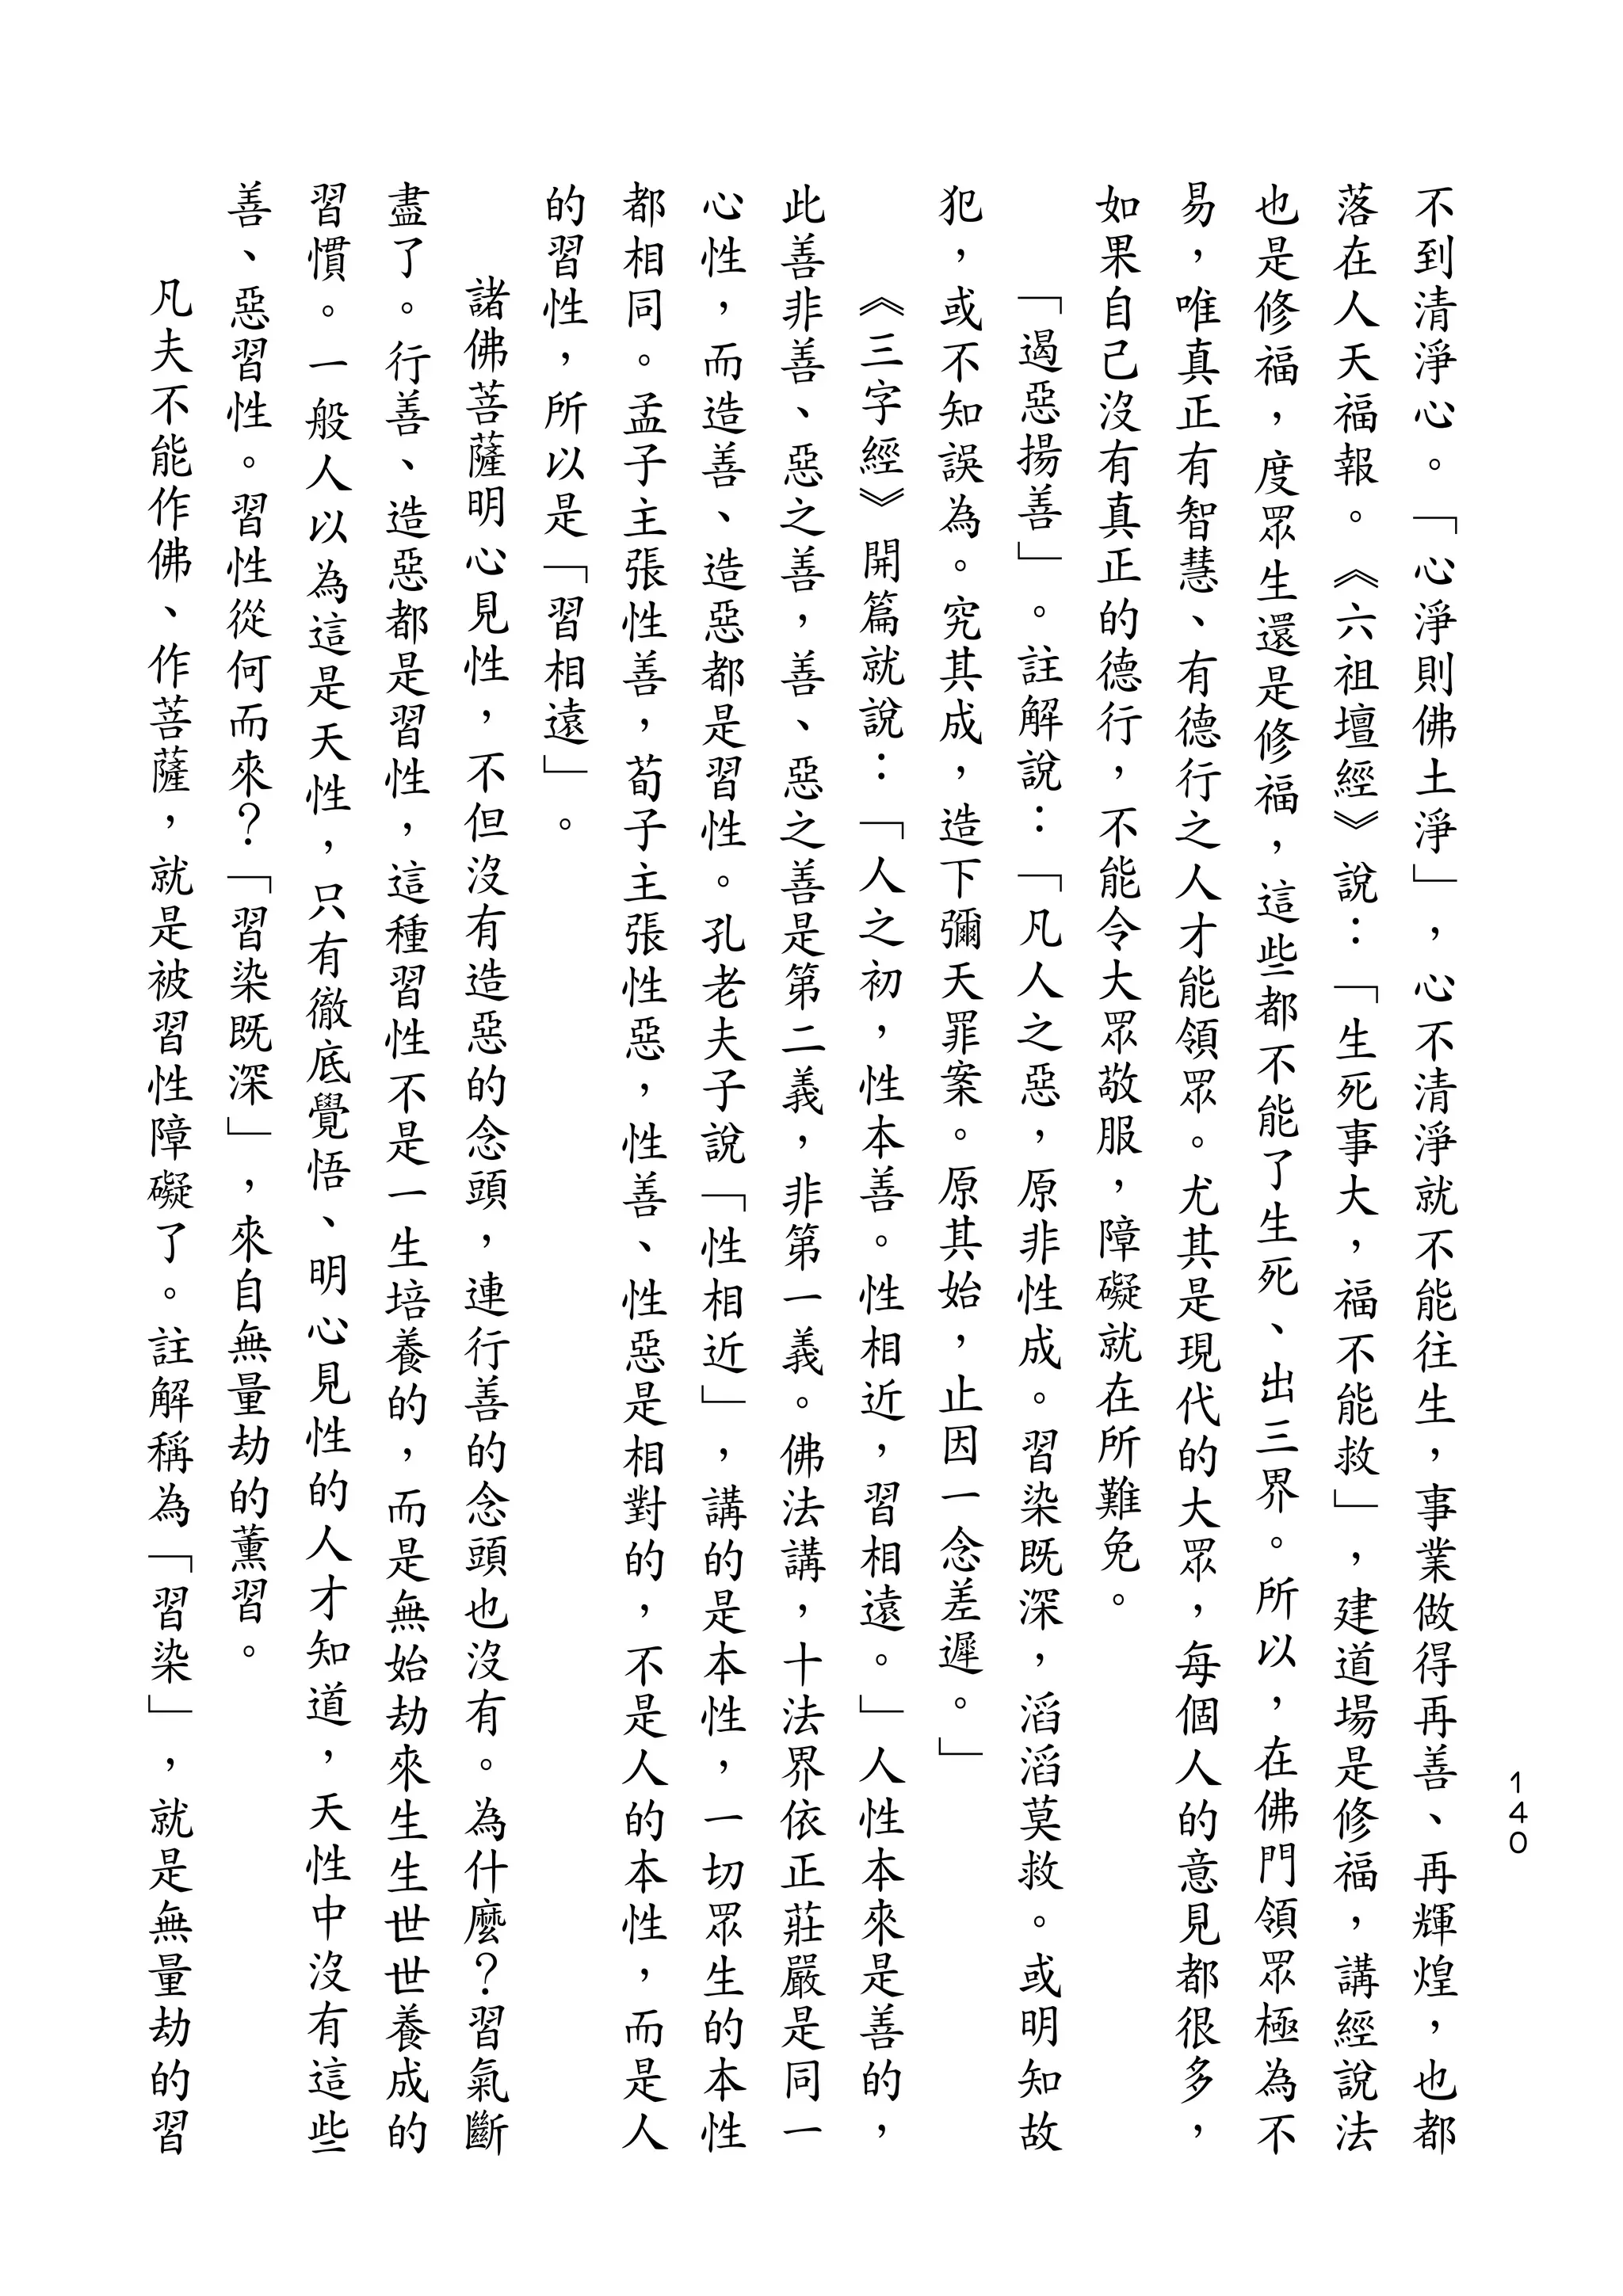 140
不到清淨心。「心淨則佛土淨」，心不清淨就不能往生，事業做得再善、再輝煌，也都
落在人天福報。《六祖壇經》說：「生死事大，福不能救」，建道場是修福，講經說法
也是修福，度眾生還是修福，這些都不能了生死、出三界。所以，在佛門領眾極為不
易，唯真正有智慧、有德行之人才能領眾。尤其是現代的大眾，每個人的意見都很多，
如果自己沒有真正的德行，不能令大眾敬服，障礙就在所難免。
「遏惡揚善」。註解說：「凡人之惡，原非性成。習染既深，滔滔莫救。或明知故
犯，或不知誤為。究其成，造下彌天罪案。原其始，止因一念差遲。」
《三字經》開篇就說：「人之初，性本善。性相近，習相遠。」人性本來是善的，
此善非善、惡之善，善、惡之善是第二義，非第一義。佛法講，十法界依正莊嚴是同一
心性，而造善、造惡都是習性。孔老夫子說「性相近」，講的是本性，一切眾生的本性
都相同。孟子主張性善，荀子主張性惡，性善、性惡是相對的，不是人的本性，而是人
的習性，所以是「習相遠」。
諸佛菩薩明心見性，不但沒有造惡的念頭，連行善的念頭也沒有。為什麼？習氣斷
盡了。行善、造惡都是習性，這種習性不是一生培養的，而是無始劫來生生世世養成的
習慣。一般人以為這是天性，只有徹底覺悟、明心見性的人才知道，天性中沒有這些
善、惡習性。習性從何而來？「習染既深」，來自無量劫的薰習。
凡夫不能作佛、作菩薩，就是被習性障礙了。註解稱為「習染」，就是無量劫的習